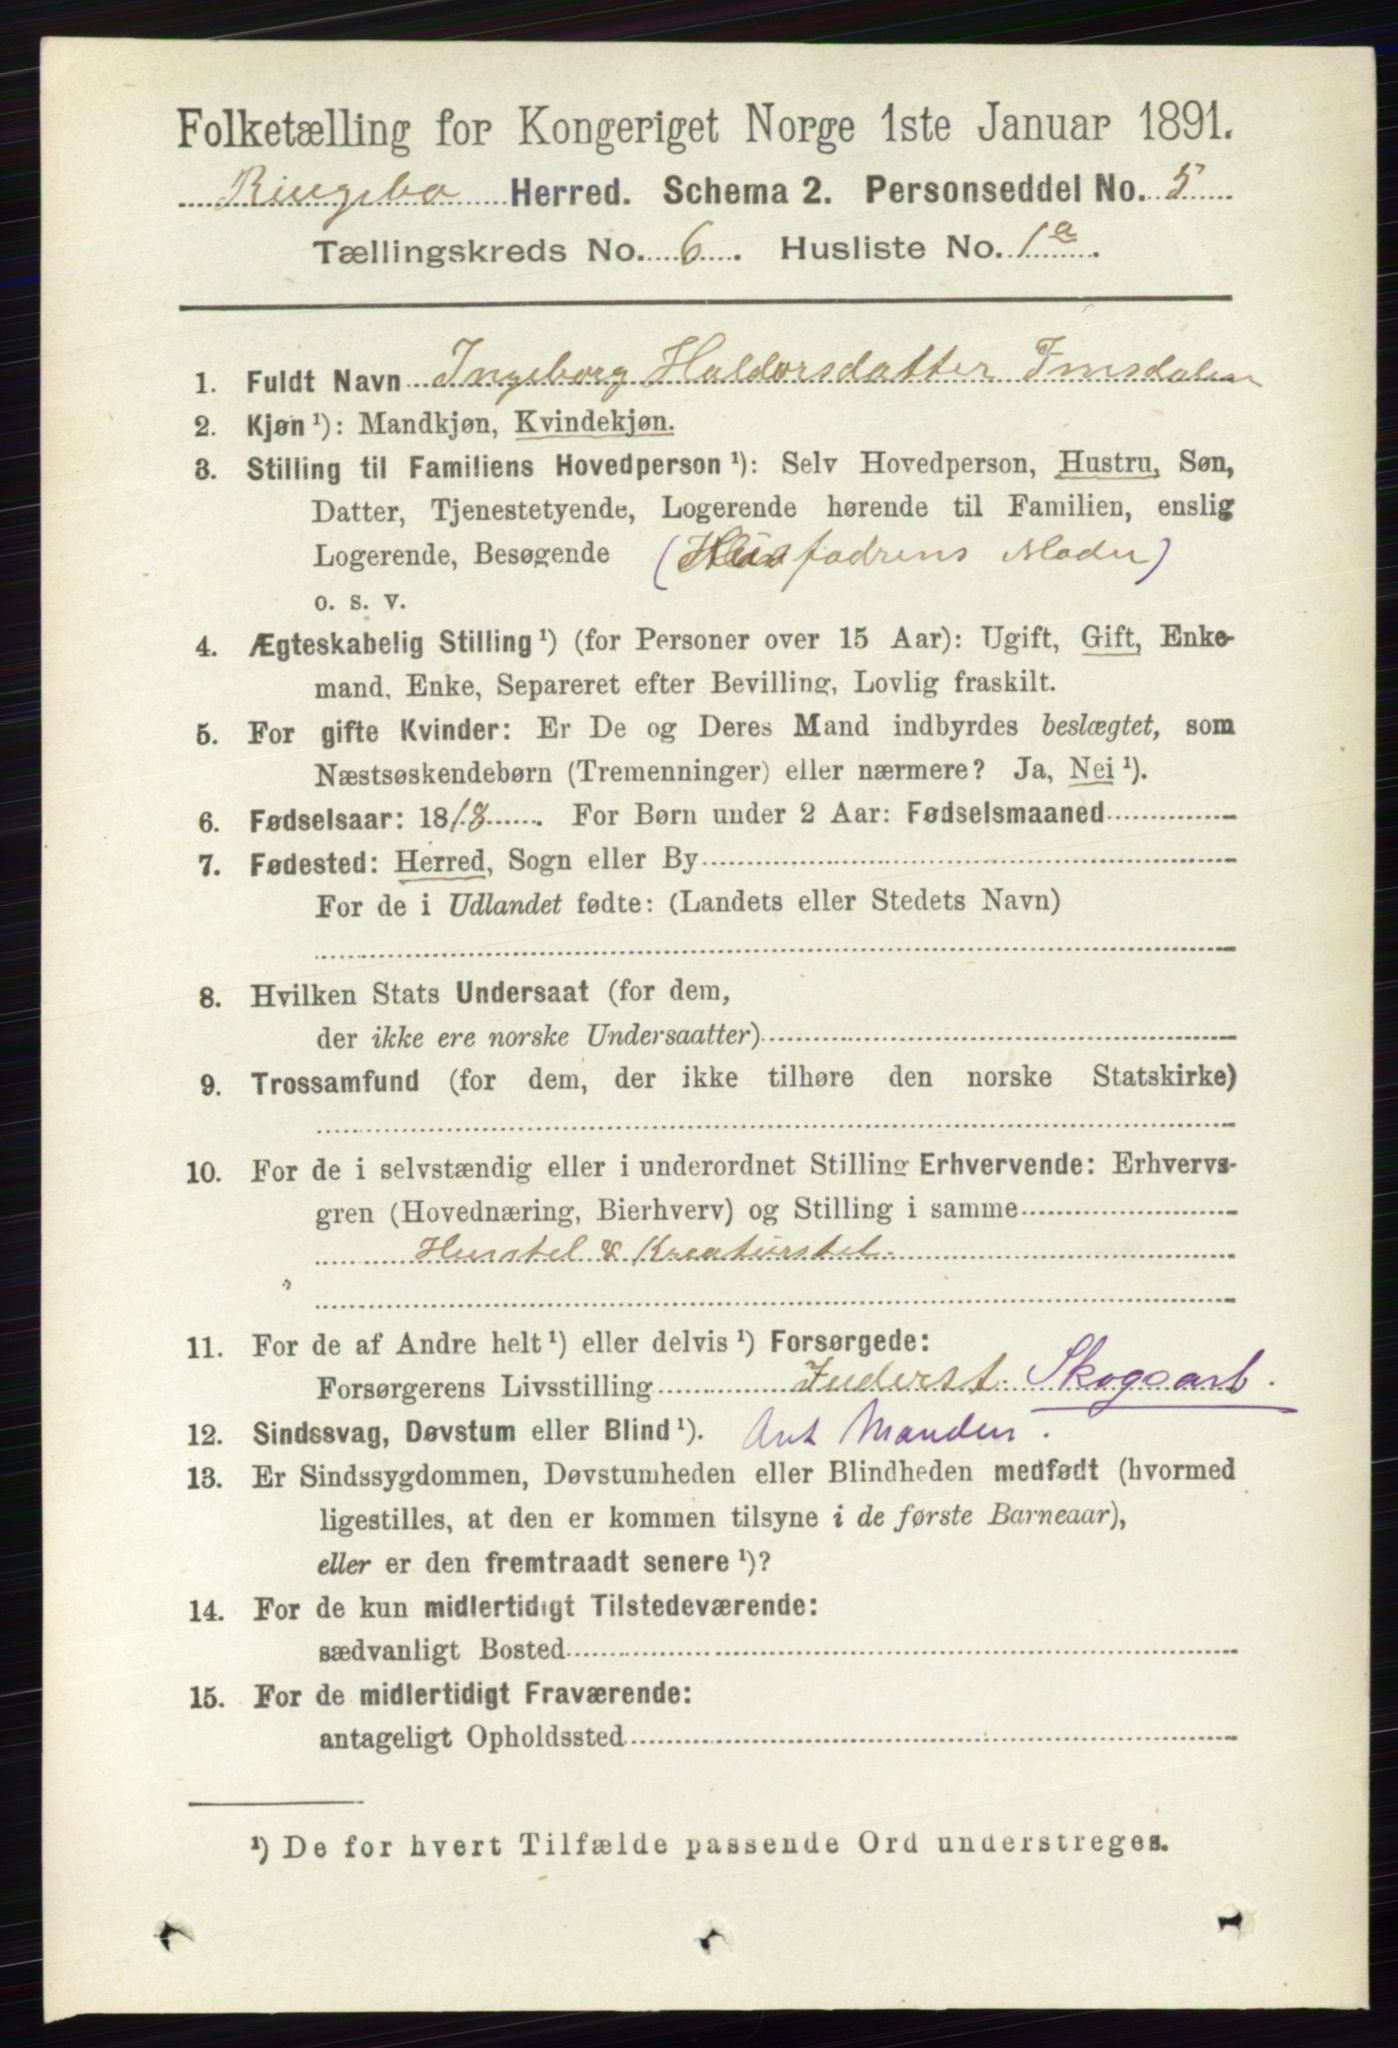 Folketælling for Kongeriget Norge 1ste Januar 1891.
Ringebo Herred. Schema 2. Personseddel No. 5
Tællingskreds No. 6. Husliste No. 1a.
1. Fuldt Navn Ingeborg Haldorsdatter Imsdalen
2. Kjøn ¹): Mandkjøn, Kvindekjøn.
3. Stilling til Familiens Hovedperson ¹): Selv Hovedperson, Hustru, Søn,
Datter, Tjenestetyende, Logerende hørende til Familien, enslig
Logerende, Besøgende (Husfadrens Moder)
o. s. v.
4. Ægteskabelig Stilling ¹) (for Personer over 15 Aar): Ugift, Gift, Enke-
mand, Enke, Separeret efter Bevilling, Lovlig fraskilt.
5. For gifte Kvinder: Er De og Deres Mand indbyrdes beslægtet, som
Næstsøskendebørn (Tremenninger) eller nærmere? Ja, Nei ¹).
6. Fødselsaar: 1818. For Børn under 2 Aar: Fødselsmaaned
7. Fødested: Herred, Sogn eller By
For de i Udlandet fødte: (Landets eller Stedets Navn)
8. Hvilken Stats Undersaat (for dem,
der ikke ere norske Undersaatter)
9. Trossamfund (for dem, der ikke tilhøre den norske Statskirke)
10. For de i selvstændig eller i underordnet Stilling Erhvervende: Erhvervs-
gren (Hovednæring, Bierhverv) og Stilling i samme
Husstel & Kreaturstel.
11. For de af Andre helt ¹) eller delvis ¹) Forsørgede:
Forsørgerens Livsstilling Inderst Skogsarb.
12. Sindssvag, Døvstum eller Blind ¹). Ant Manden.
13. Er Sindssygdommen, Døvstumheden eller Blindheden medfødt (hvormed
ligestilles, at den er kommen tilsyne i de første Barneaar),
eller er den fremtraadt senere ¹)?
14. For de kun midlertidigt Tilstedeværende:
sædvanligt Bosted
15. For de midlertidigt Fraværende:
antageligt Opholdssted
¹) De for hvert Tilfælde passende Ord understreges.